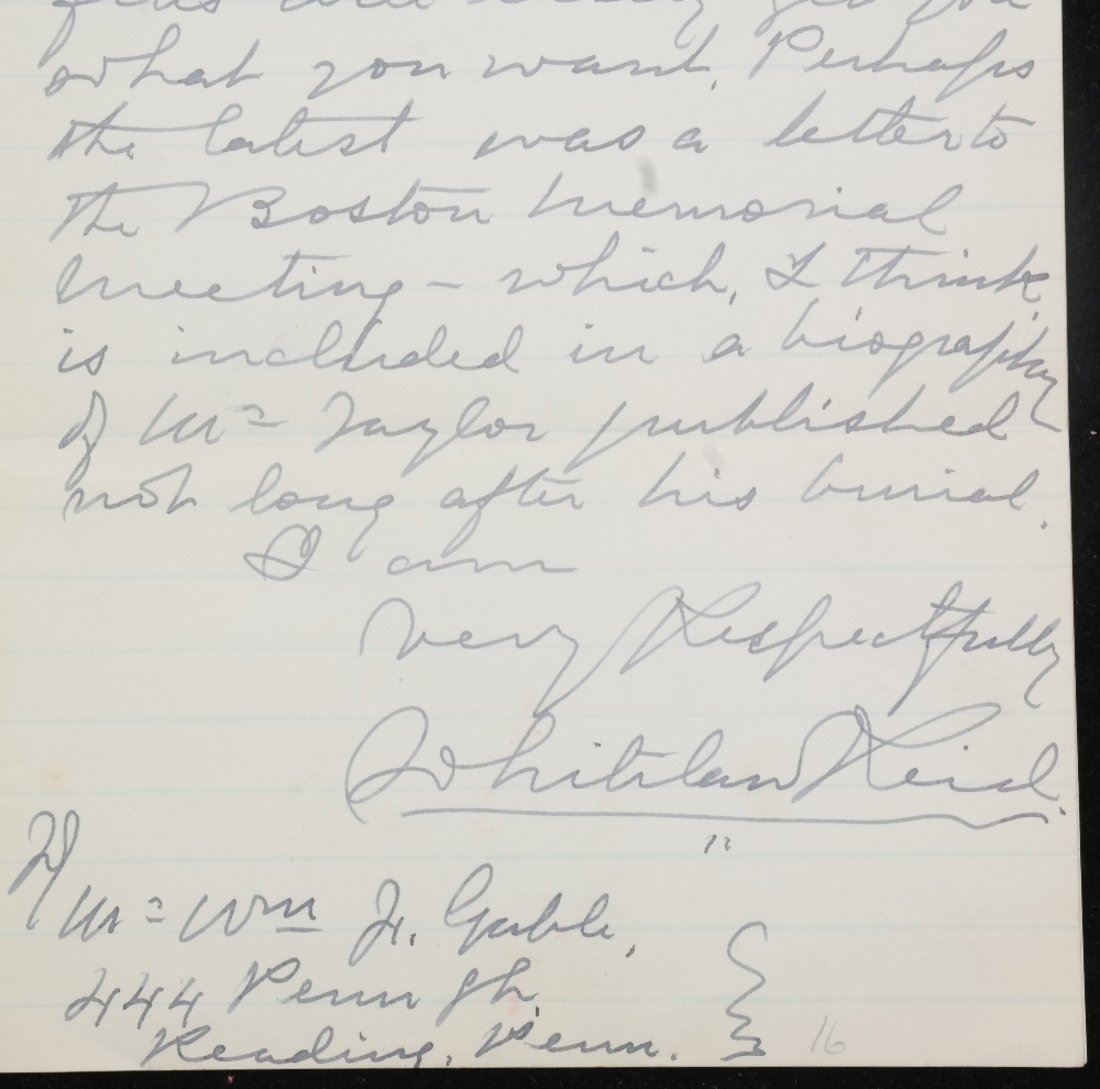 get you
what you want. Perhaps
the latest was a letter to
the Boston Memorial
Meeting - which, I think
is included in a biography
of Mr. Taylor published
not long after his burial.
I am
Very Respectfully
Whitelaw Reid.
To
Mr. Wm H. Gable,
444 Penn St.
Reading, Penn.
16